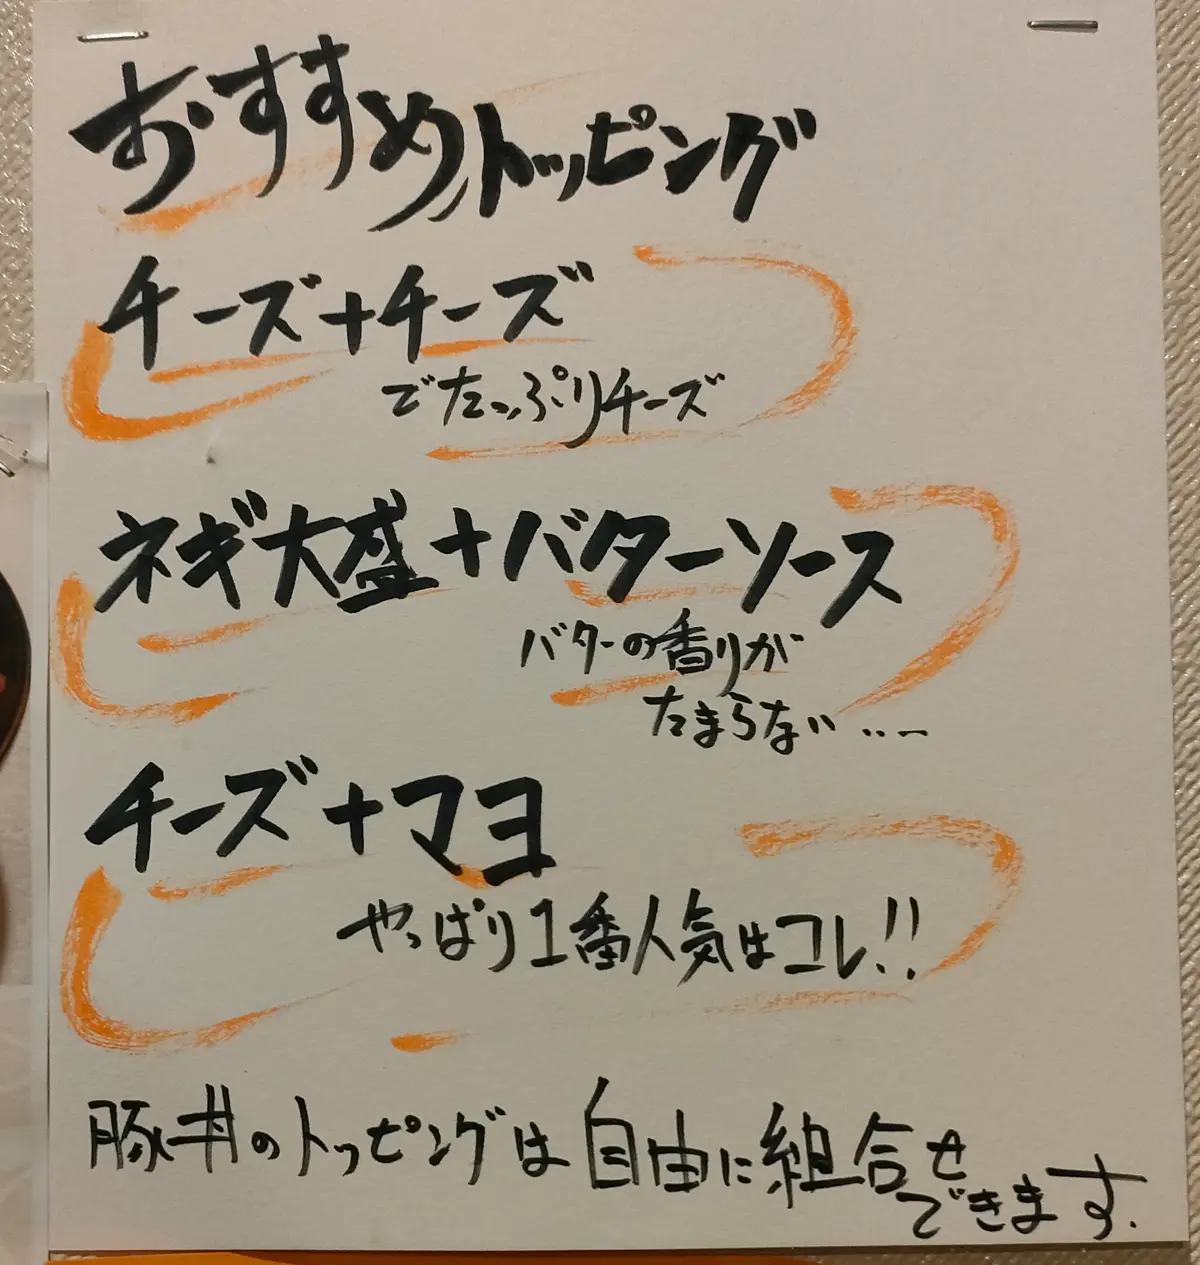 おすすめトッピング
チーズ+チーズ
でたっぷりチーズ
ネギ大盛+バターソース
バターの香りが
たまらない……
チーズ+マヨ
やっぱり1番人気はコレ!!
豚丼のトッピングは自由に組合せ
できます.